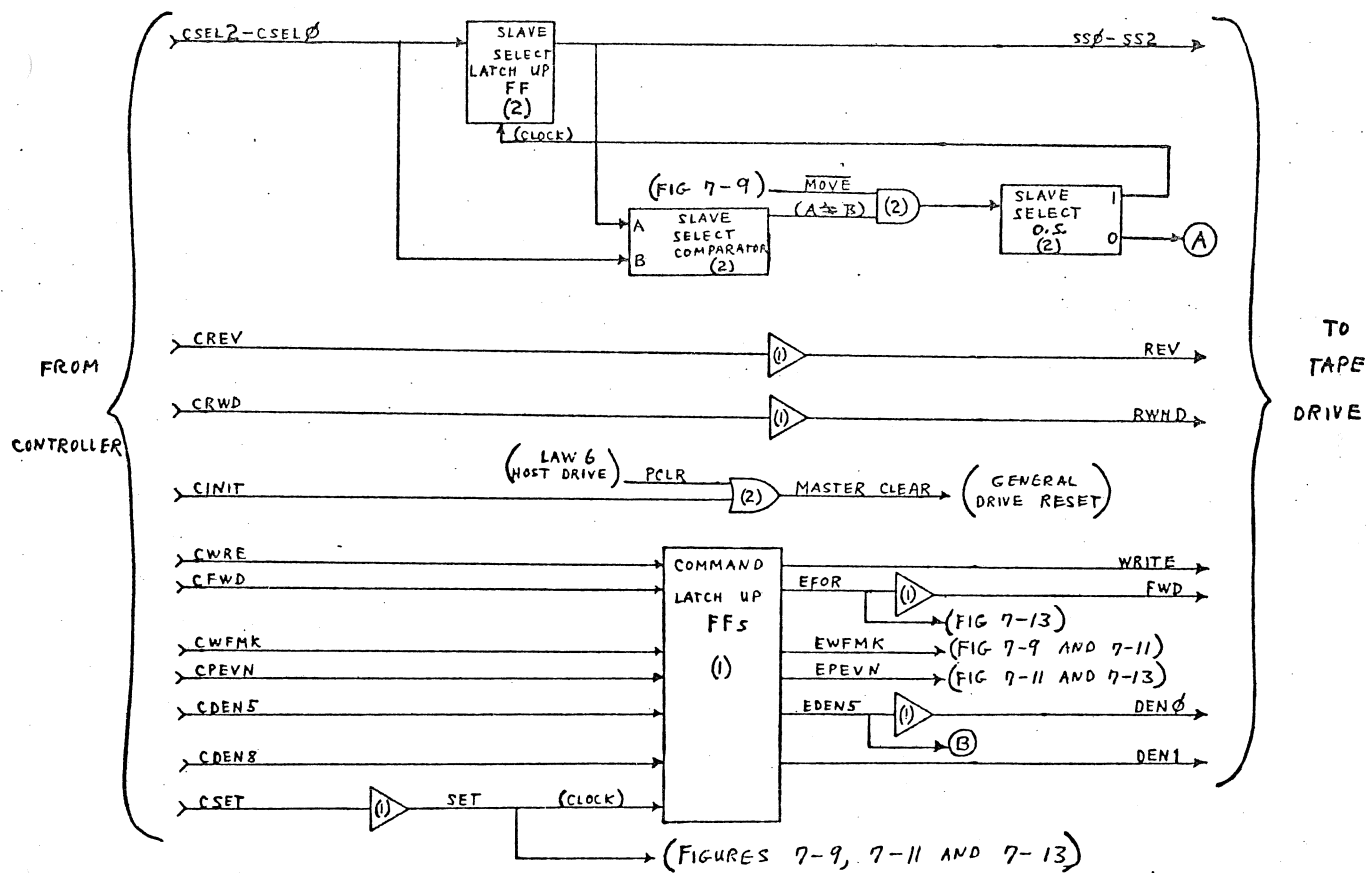 CSEL2-CSELØ
SLAVE
SELECT
LATCH UP
FF
(2)
SSØ-SS2
(CLOCK)
(FIG 7-9)
MOVE
(A≠B)
(2)
A
B
SLAVE
SELECT
COMPARATOR
(2)
SLAVE
SELECT
O.S.
(2)
1
0
A
FROM
CONTROLLER
TO
TAPE
DRIVE
CREV
(1)
REV
CRWD
(1)
RWND
(LAW 6
HOST DRIVE)
PCLR
CINIT
(2)
MASTER CLEAR
(GENERAL
DRIVE RESET)
CWRE
CFWD
CWFMK
CPEVN
CDEN5
CDEN8
CSET
(1)
SET
(CLOCK)
COMMAND
LATCH UP
FFs
(1)
WRITE
EFOR
(1)
FWD
(FIG 7-13)
EWFMK
(FIG 7-9 AND 7-11)
EPEVN
(FIG 7-11 AND 7-13)
EDEN5
(1)
DENØ
B
DEN1
(FIGURES 7-9, 7-11 AND 7-13)